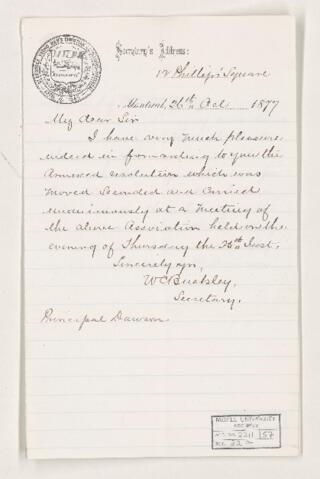 Secretary's Address:
12 Phillips Square
Montreal, 26th Oct 1877
My dear Sir
I have very much pleasure
indeed in forwarding to you the
Annexed resolution which was
moved Seconded and Carried
unanimously at a meeting of
the above Association held on the
evening of Thursday the 25th Inst.
Sincerely yrs,
W C Buckley,
Secretary.
Principal Dawson
McGILL UNIVERSITY
ARCHIVES
2211 57